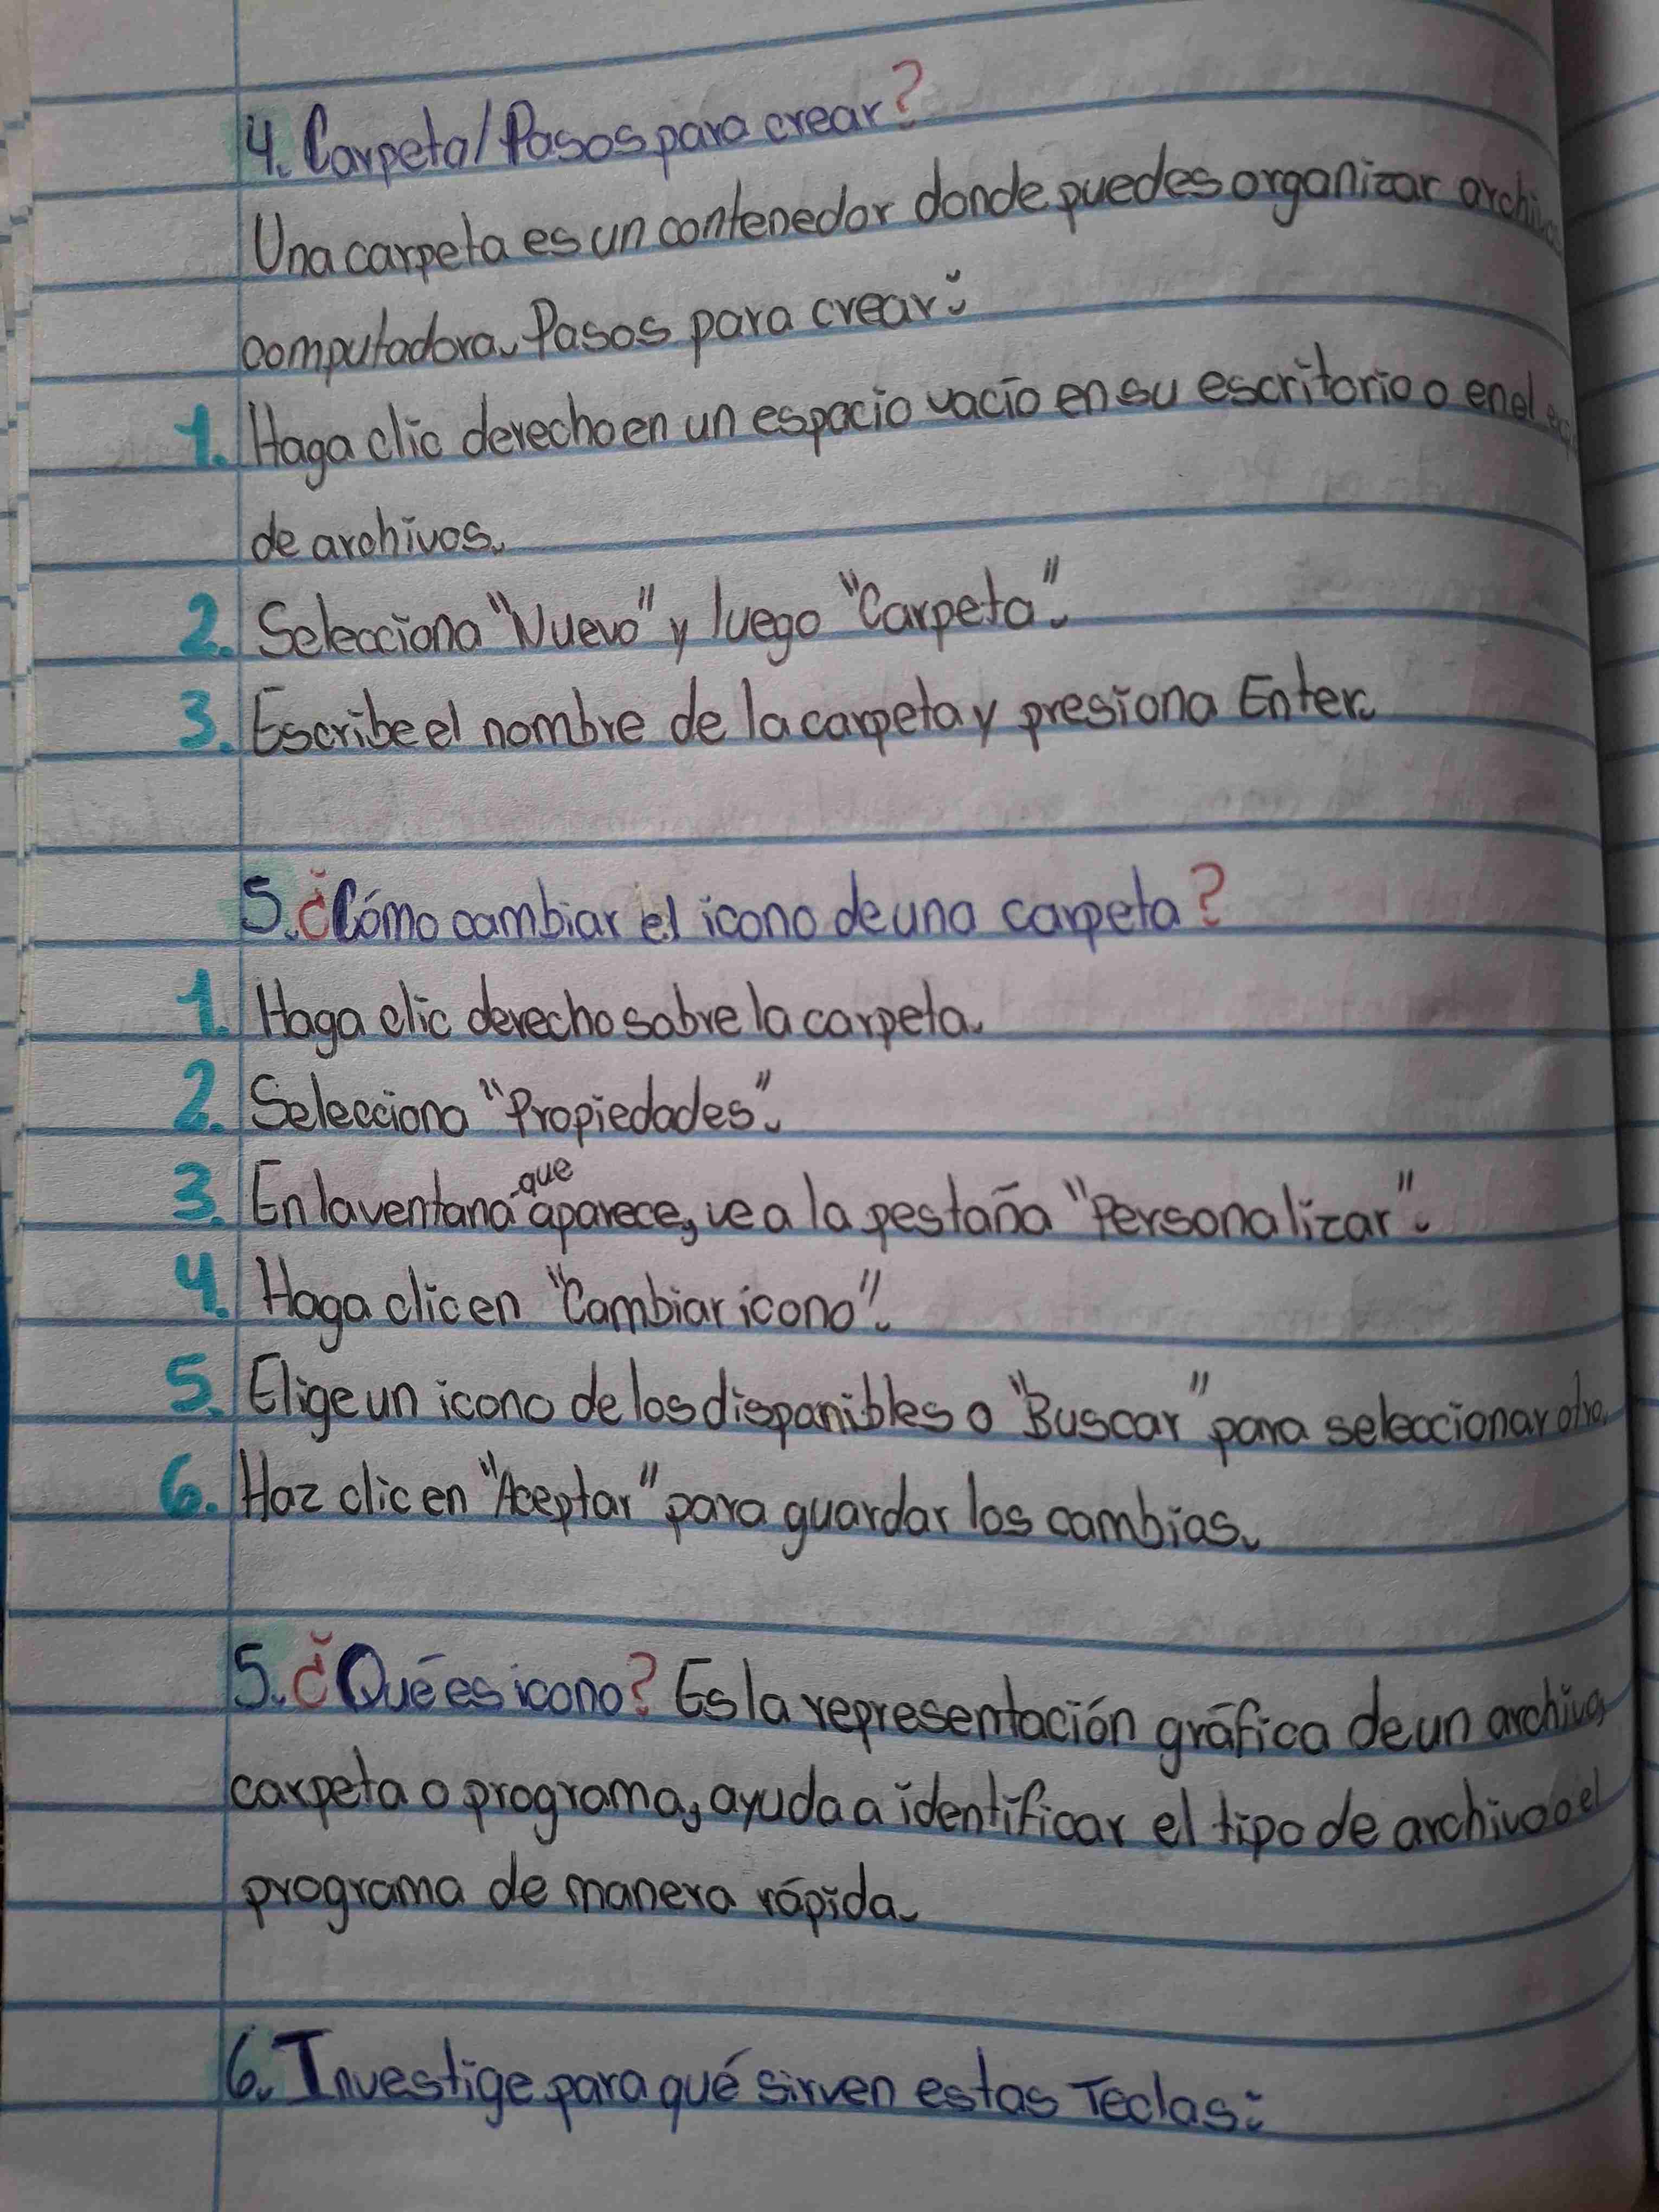 4. Carpeta/Pasos para crear?
Una carpeta es un contenedor donde puedes organizar
computadora. Pasos para crear:
1. Haga clic derecho en un espacio vacío en su escritorio o en el
de archivos.
2. Selecciona "Nuevo" y luego "Carpeta".
3. Escribe el nombre de la carpeta y presiona Enter.
5. ¿Cómo cambiar el icono de una carpeta?
1. Haga clic derecho sobre la carpeta.
2. Selecciona "Propiedades".
3. En la ventana que aparece, ve a la pestaña "Personalizar".
4. Haga clic en "Cambiar icono".
5. Elige un icono de los disponibles o "Buscar" para seleccionar otro.
6. Haz clic en "Aceptar" para guardar los cambios.
5. ¿Qué es icono? Es la representación gráfica de un archivo,
carpeta o programa, ayuda a identificar el tipo de archivo o el
programa de manera rápida.
6. Investige para qué sirven estas Teclas: